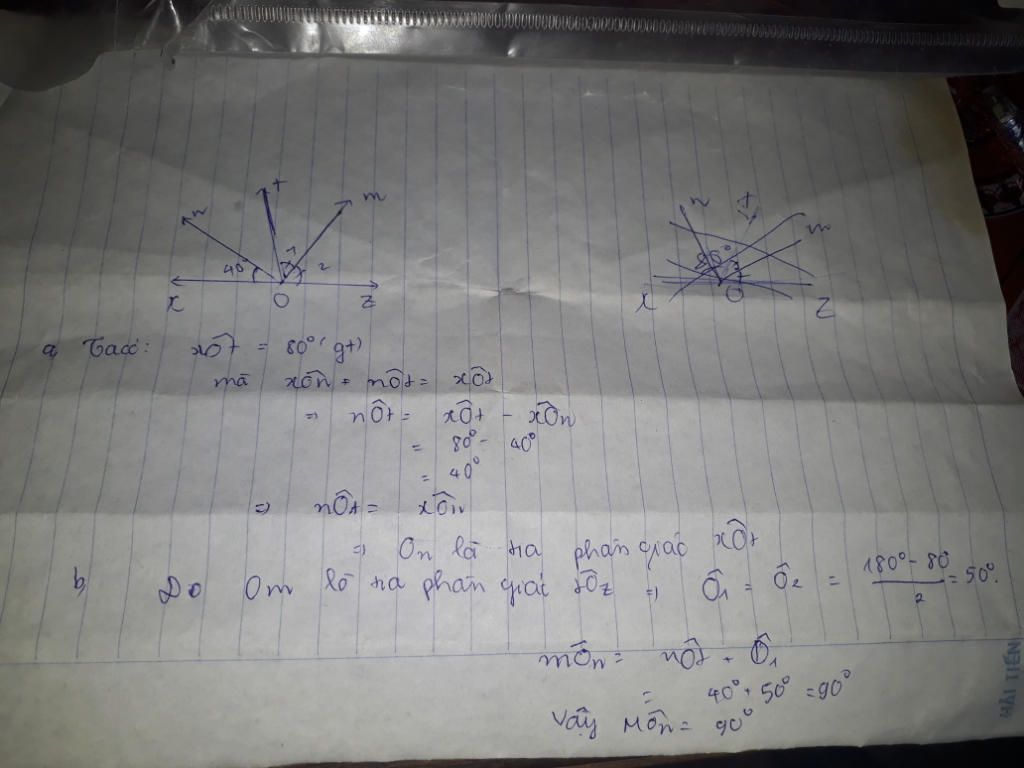 n t m
40° 1 2
x O z
n t m
80°
x O z
a, Ta có: xÔt = 80° (gt)
mà xÔn + nÔt = xÔt
=> nÔt = xÔt - xÔn
= 80° - 40°
= 40°
=> nÔt = xÔn
=> On là tia phân giác xÔt
b, Do Om là tia phân giác tÔz => Ô1 = Ô2 = 180° - 80 / 2 = 50°.
mÔn = nÔt + Ô1
= 40° + 50° = 90°
Vậy mÔn = 90°
HẢI TIẾN